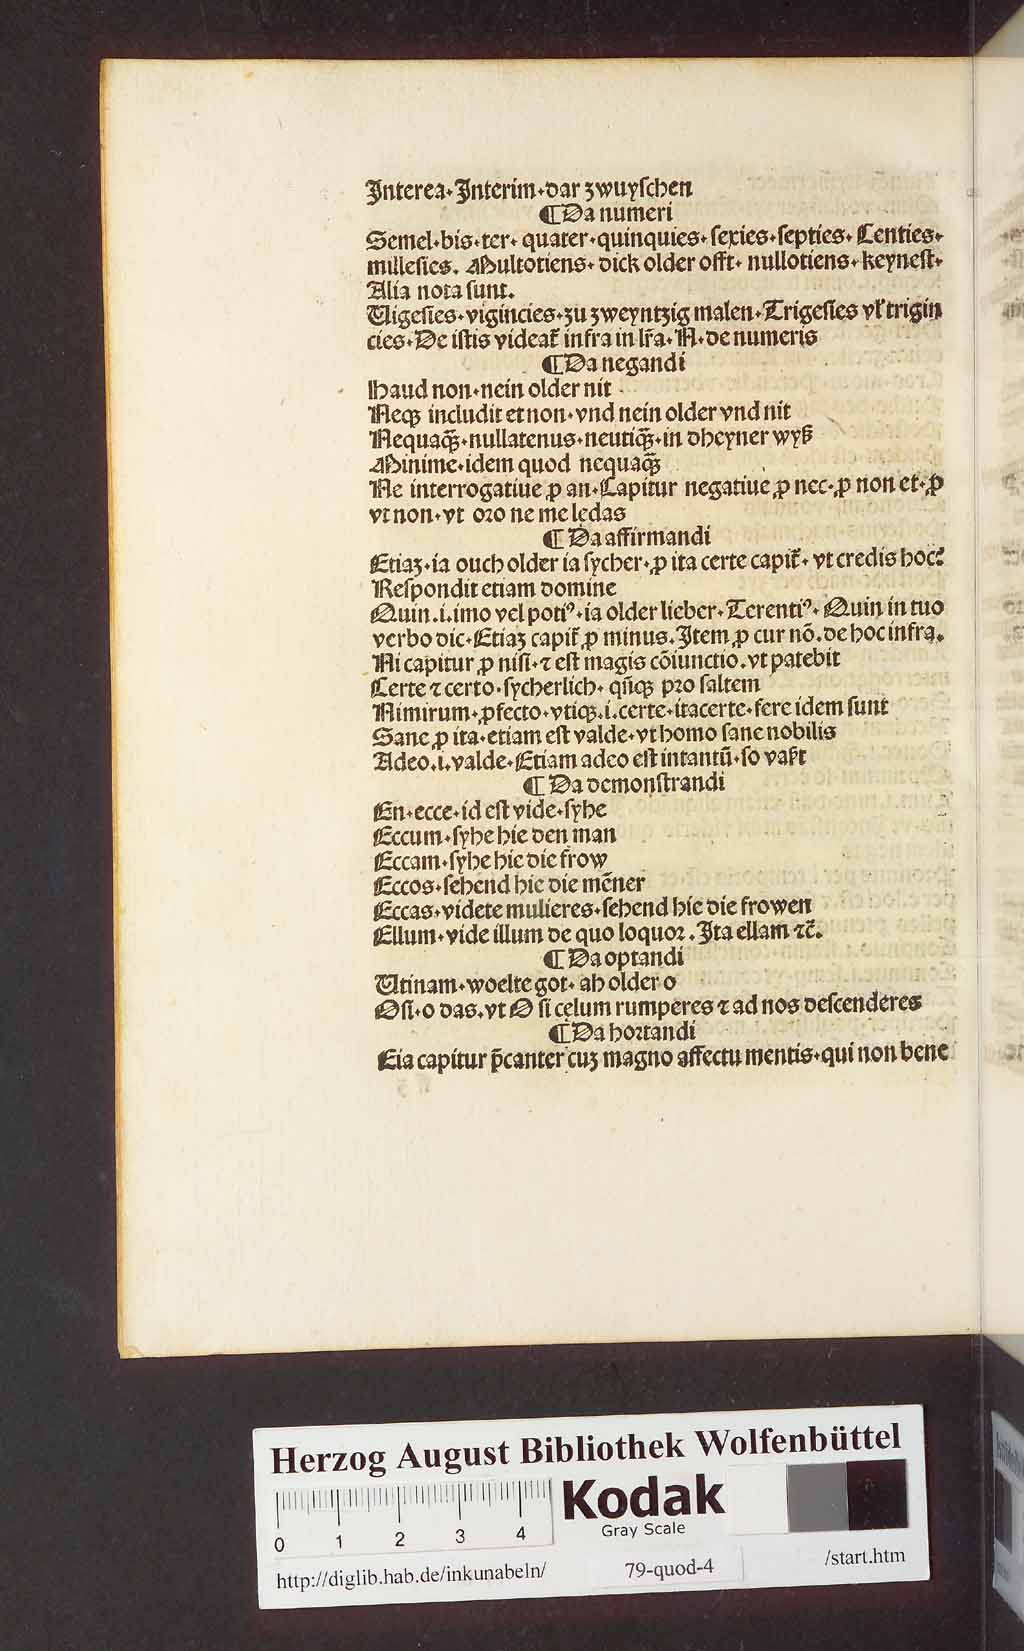 Interea. Interim. dar zwuyſchen
¶ Da numeri
Semel. bis. ter. quater. quinquies. ſexies. ſepties. Centies.
milleſies. Multotiens. dick older offt. nullotiens. keyneſt.
Alia nota ſunt.
Uigeſies. vigincies. zu zweyntzig malen. Trigeſies vl̛ trigin
cies. De iſtis videat᷑ infra in lr̄a. N. de numeris
¶ Da negandi
Haud non. nein older nit
Neqꝫ includit et non. vnd nein older vnd nit
Nequaq̄ꝫ. nullatenus. neutiq̄ꝫ. in dheyner wyß
Minime. idem quod nequaq̄ꝫ
Ne interrogatiue ꝓ an. Capitur negatiue ꝓ nec. ꝓ non et. ꝓ
vt non. vt oꝛo ne me lędas
¶ Da affirmandi
Etiaꝫ. ia ouch older ia ſycher. ꝓ ita certe capit᷑. vt credis hoc?
Reſpondit etiam domine
Quin. i. imo vel potiꝰ. ia older lieber. Terentiꝰ. Quin in tuo
verbo dic. Etiaꝫ capit᷑ ꝓ minus. Item ꝓ cur nō. de hoc infra.
Ni capitur ꝓ niſi. ⁊ eſt magis cōiunctio. vt patebit
Certe ⁊ certo. ſycherlich. qn̄qꝫ pꝛo ſaltem
Nimirum. ꝓfecto. vtiqꝫ. i. certe. itacerte. fere idem ſunt
Sane ꝓ ita. etiam eſt valde. vt homo ſane nobilis
Adeo. i. valde. Etiam adeo eſt intantū. ſo vaſt
¶ Da demonſtrandi
En. ecce. id eſt vide. ſyhe
Eccum. ſyhe hie den man
Eccam. ſyhe hie die frow
Eccos. ſehend hie die mēner
Eccas. videte mulieres. ſehend hie die frowen
Ellum. vide illum de quo loquoꝛ. Ita ellam ⁊c̄.
¶ Da optandi
Utinam. woelte got. ah older o
Oſi. o das. vt O ſi cęlum rumperes ⁊ ad nos deſcenderes
¶ Da hoꝛtandi
Eia capitur p̄canter cuꝫ magno affectu mentis. qui non bene
Herzog August Bibliothek Wolfenbüttel
Kodak
Gray Scale
0 1 2 3 4
http://diglib.hab.de/inkunabeln/ 79-quod-4 /start.htm